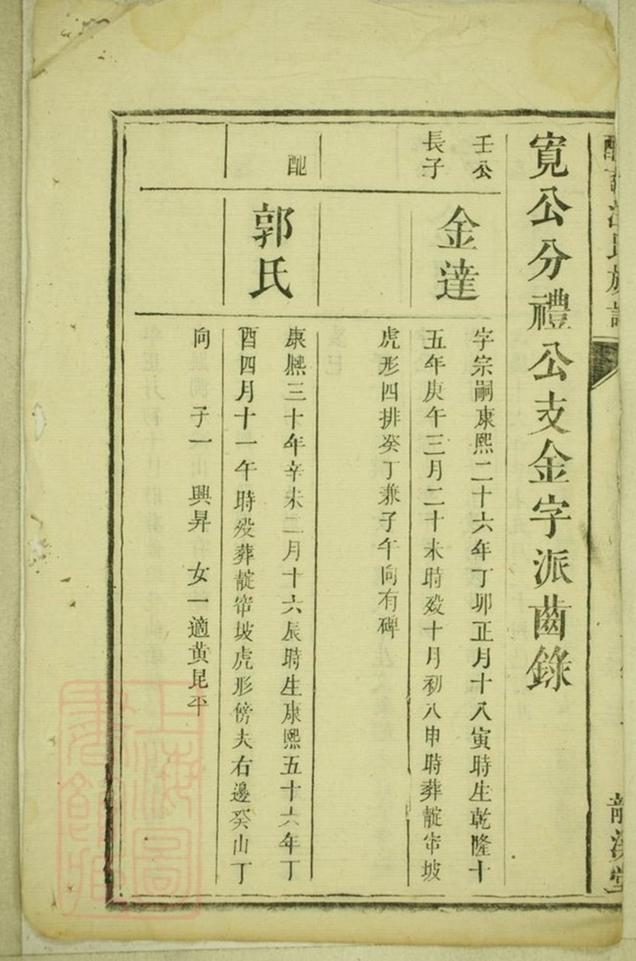 寬公分禮公支金字派齒錄
壬公
長子
金達
字宗嗣康熙二十六年丁卯正月十八寅時生乾隆十
五年庚午三月二十未時歿十月初八申時葬靛帘坡
虎形四排癸丁兼子午向有碑
配
郭氏
康熙三十年辛未二月十六辰時生康熙五十六年丁
酉四月十一午時歿葬靛帘坡虎形傍夫右邊癸山丁
向 子一 興昇 女一適黃昆平
上海圖